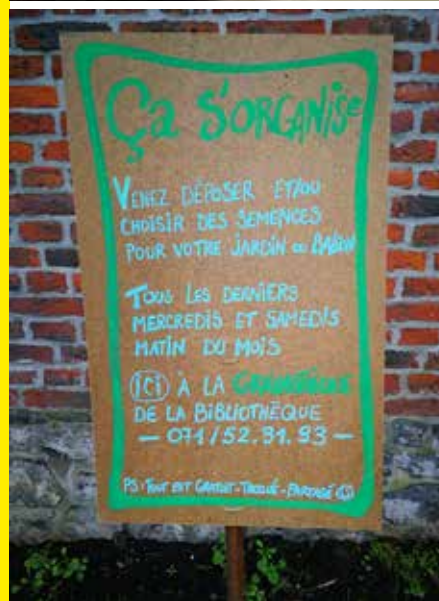 Ça S'ORGANISe
VENEZ DÉPOSER ET/OU
CHOISIR DES SEMENCES
POUR VOTRE JARDIN ou BALCON
TOUS LES DERNIERS
MERCREDIS ET SAMEDIS
MATIN DU MOIS
ICI À LA GRAINOTHÈQUE
DE LA BIBLIOTHÈQUE
- 071/52.31.93 -
PS: TOUT EST GRATUIT - TROQUÉ - PARTAGÉ